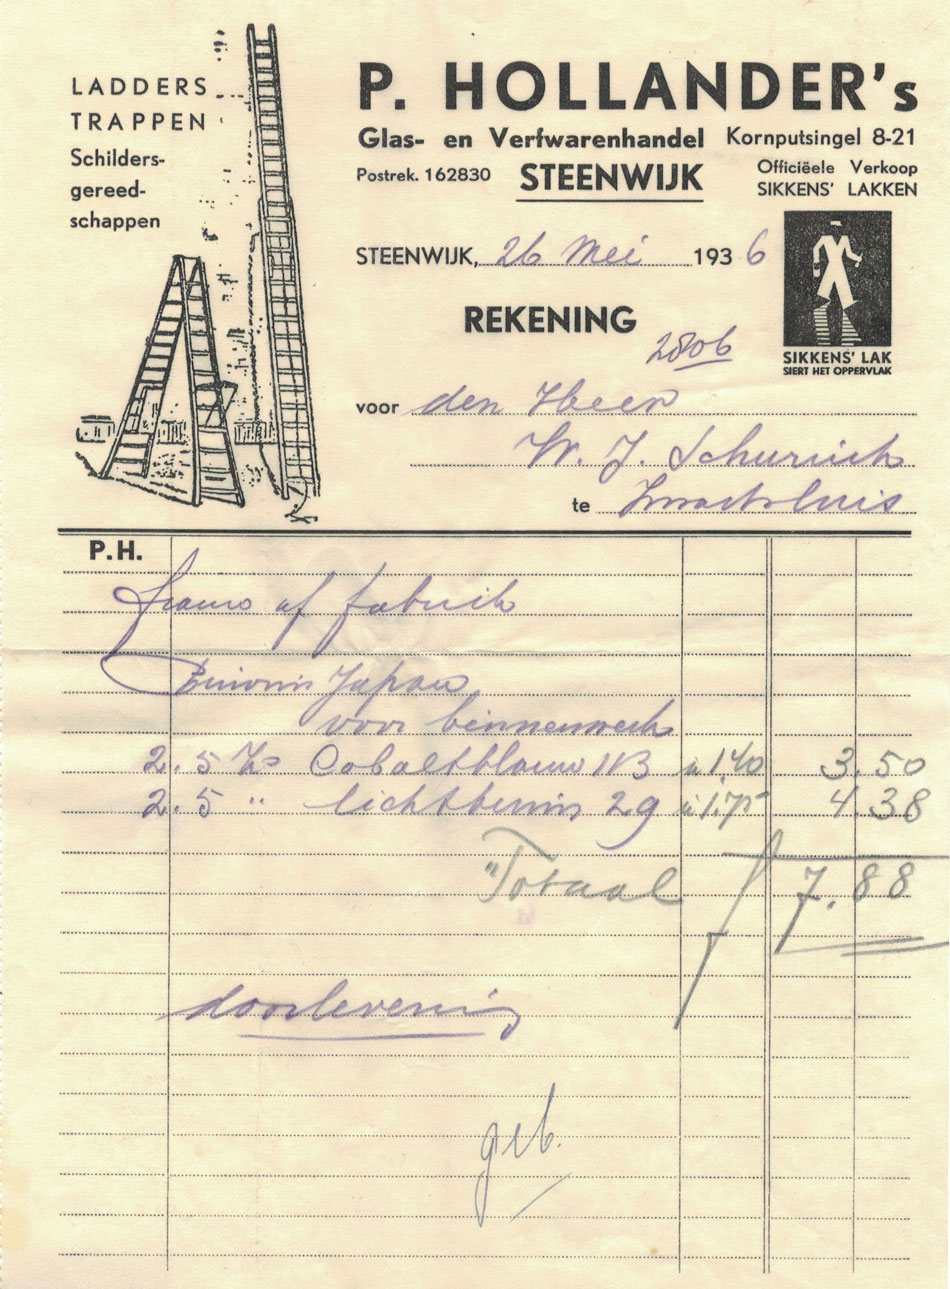 LADDERS
TRAPPEN
Schilders-
gereed-
schappen
P. HOLLANDER's
Glas- en Verfwarenhandel Kornputsingel 8-21
Postrek. 162830 STEENWIJK Officiëele Verkoop
SIKKENS' LAKKEN
STEENWIJK, 26 Mei 1936
SIKKENS' LAK
SIERT HET OPPERVLAK
REKENING
2806
voor den Heer
W. J. Schurink
te Zwartsluis
P.H.
franco af fabriek
Japan
voor binnenwerk
2.5 Ko Cobaltblauw 113 à 1.40 3.50
2.5 " lichtbruin 29 à 1.75 4.38
Totaal f 7.88
doorlevering
geb.